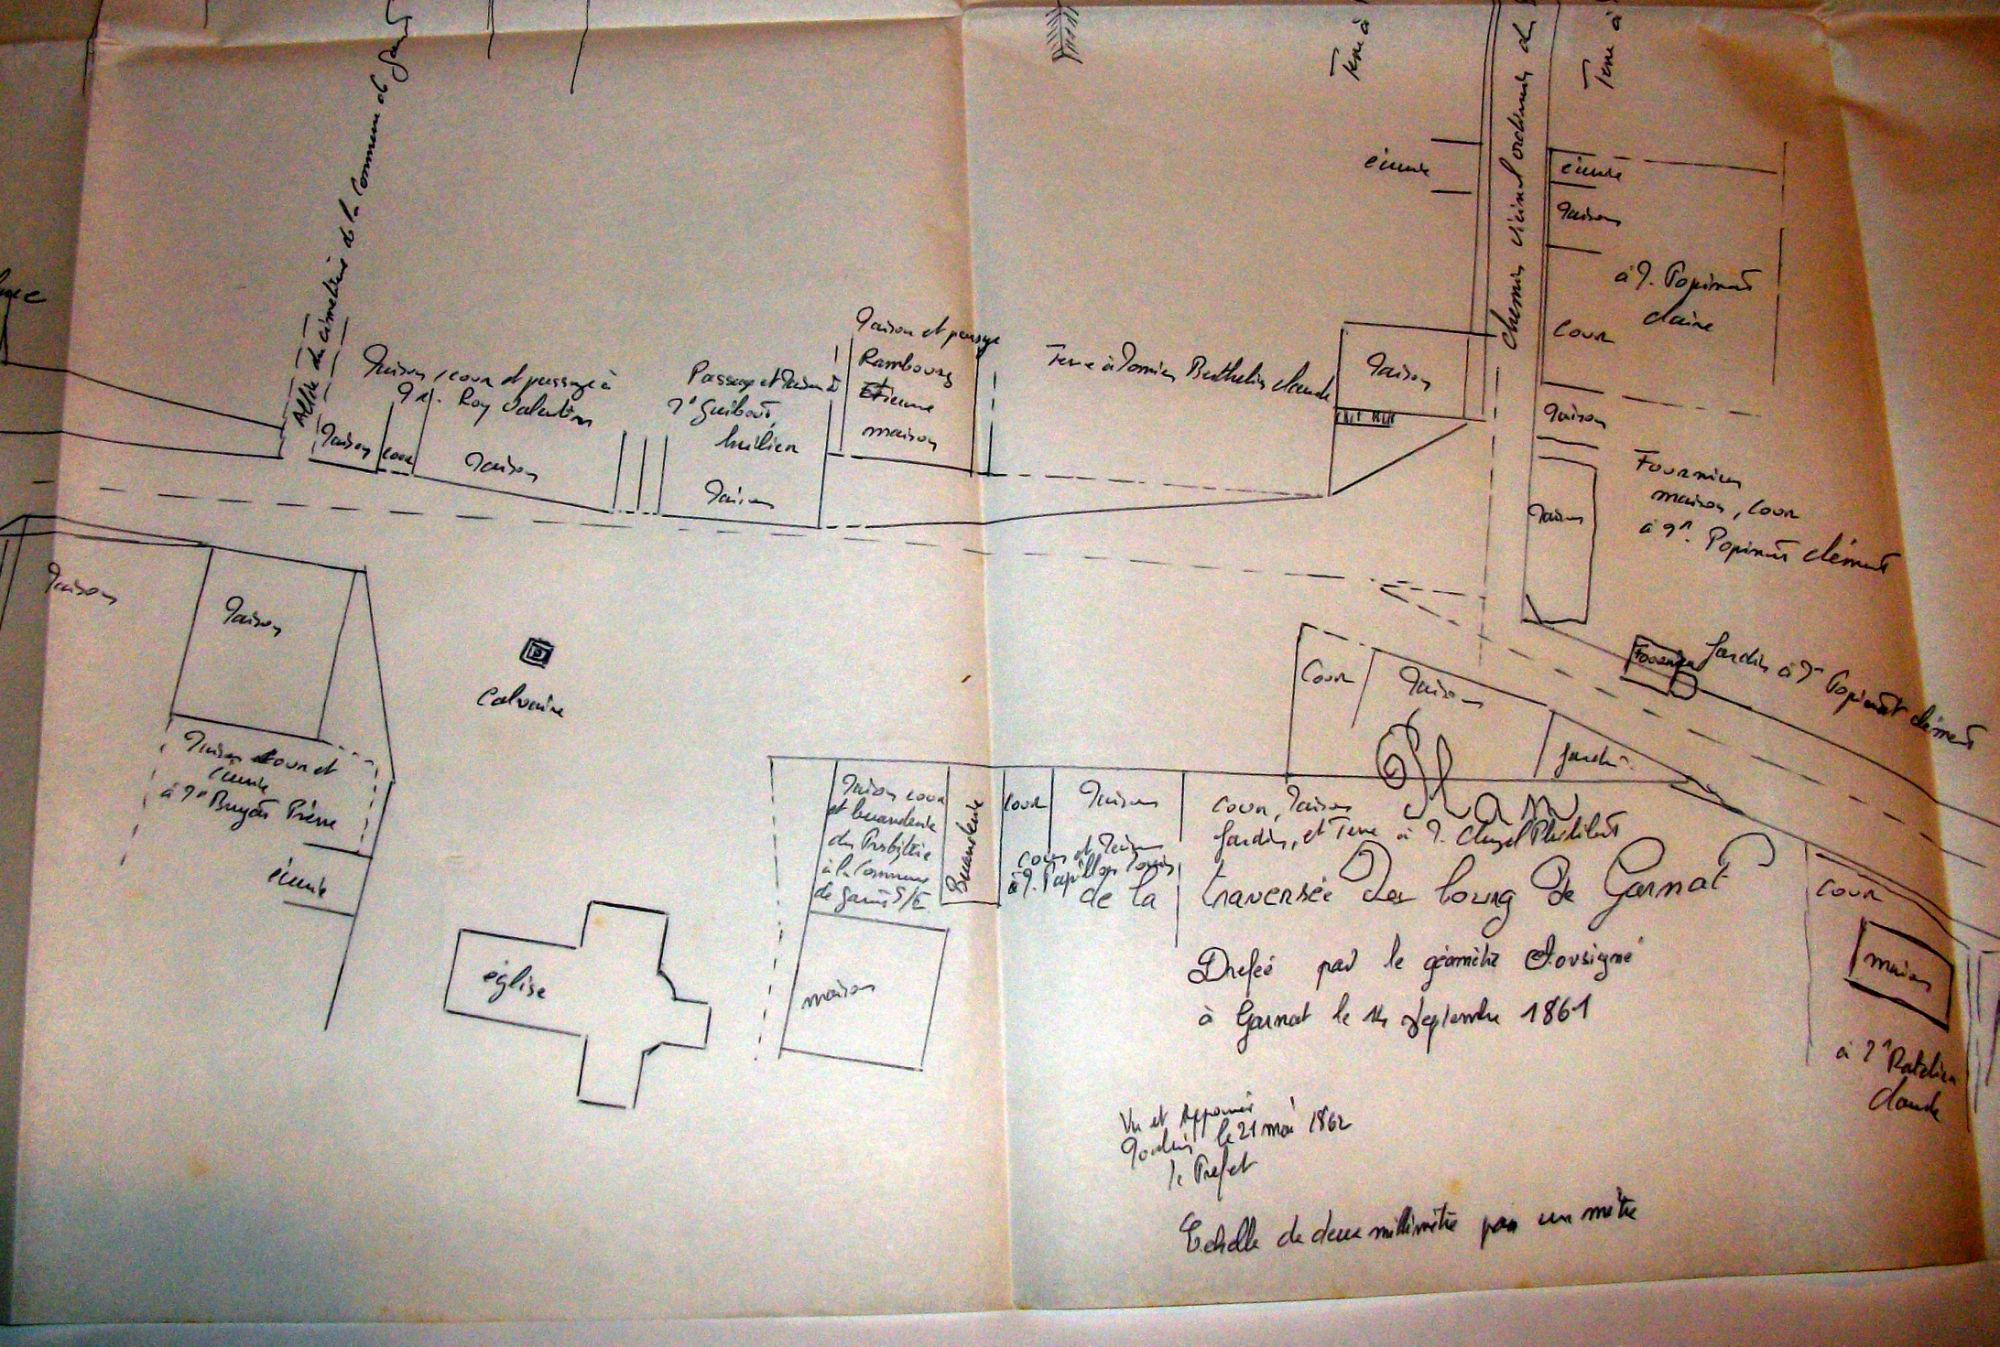 Allée du cimetière de la Commune de
Terre à
chemin vicinal ordinaire
Terre à
écurie
écurie
maison
à M. Popinat
claire
cour
maison
Fournier
maison, cour
à Mr. Popinat clément
maison
Fournier
Jardin à Mr Popinat clément
maison, cour et passage à
Mr. Roy Valentin
maison
cour
maison
Passage et maison à
Mr Guibout
maison
maison et passage
Rambourg
Etienne
maison
Terre à Berthelin claude
maison
maison
maison
calvaire
maison cour et
écurie
à Mr Pierre
écurie
église
maison cour
et buanderie
du Presbytère
à la Commune
de
maison
Buanderie
cour
maison
cour et maison
à M. Papillon Louis
cour
maison
jardin
cour, maison
Jardin, et Terre à M. Philibert
Plan
de la traversée du bourg de Garnat
Dressé par le géomètre soussigné
à Garnat le 14 septembre 1861
Vu et Approuvé
Moulins le 21 mai 1862
le Prefet
Echelle de deux millimètre par un mètre
cour
maison
à Mr
claude